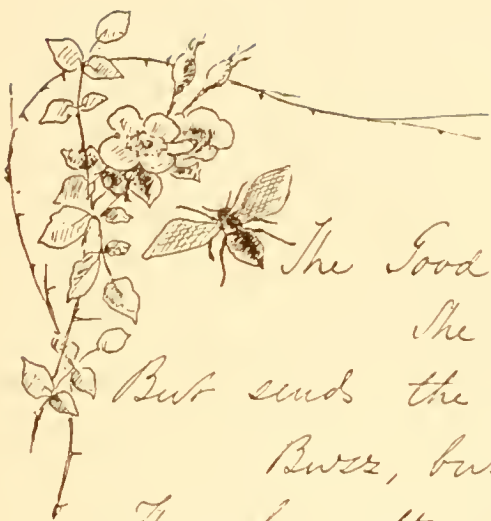 The Good
The
But sends the
Buzz, bu